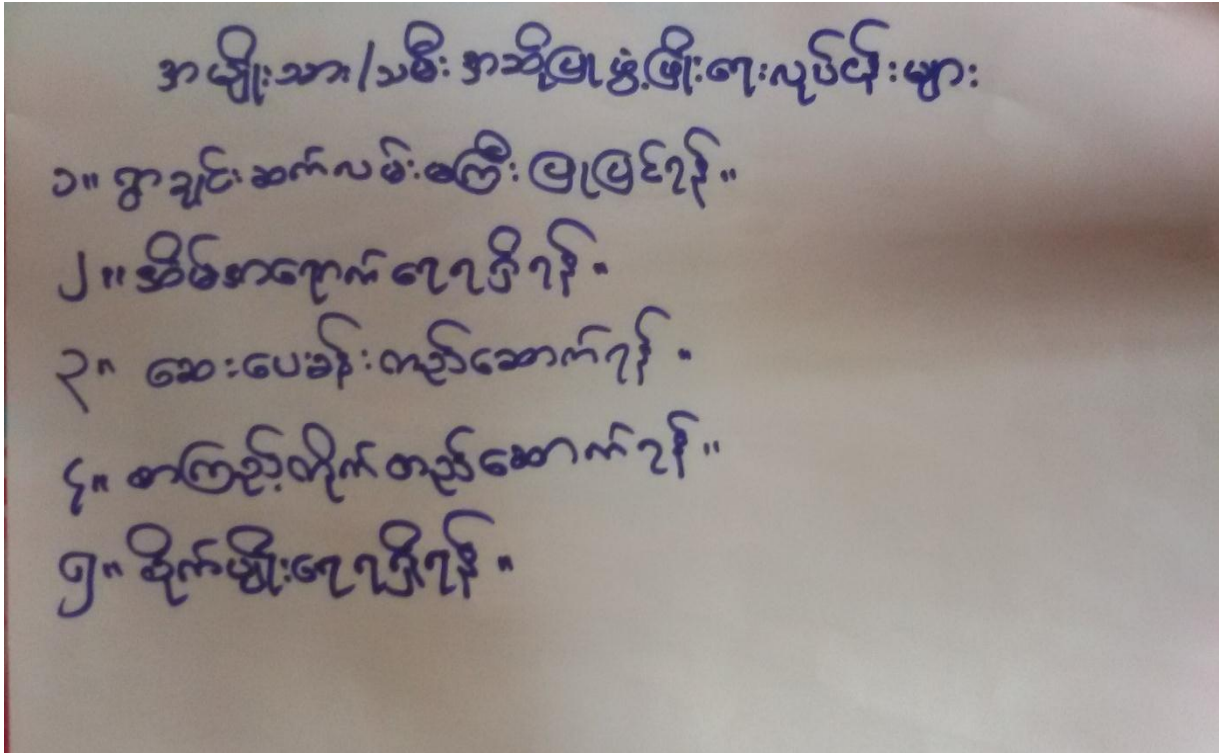 အမျိုးသား/သမီး အဆိုပြု ဖွံ့ဖြိုးရေးလုပ်ငန်းများ
၁။ ရွာချင်းဆက်လမ်းမကြီး ပြုပြင်ရန်။
၂။ အိမ်အရောက် ရေရရှိရန်။
၃။ ဆေးပေးခန်း တည်ဆောက်ရန်။
၄။ စာကြည့်တိုက် တည်ဆောက်ရန်။
၅။ စိုက်ပျိုးရေရရှိရန်။